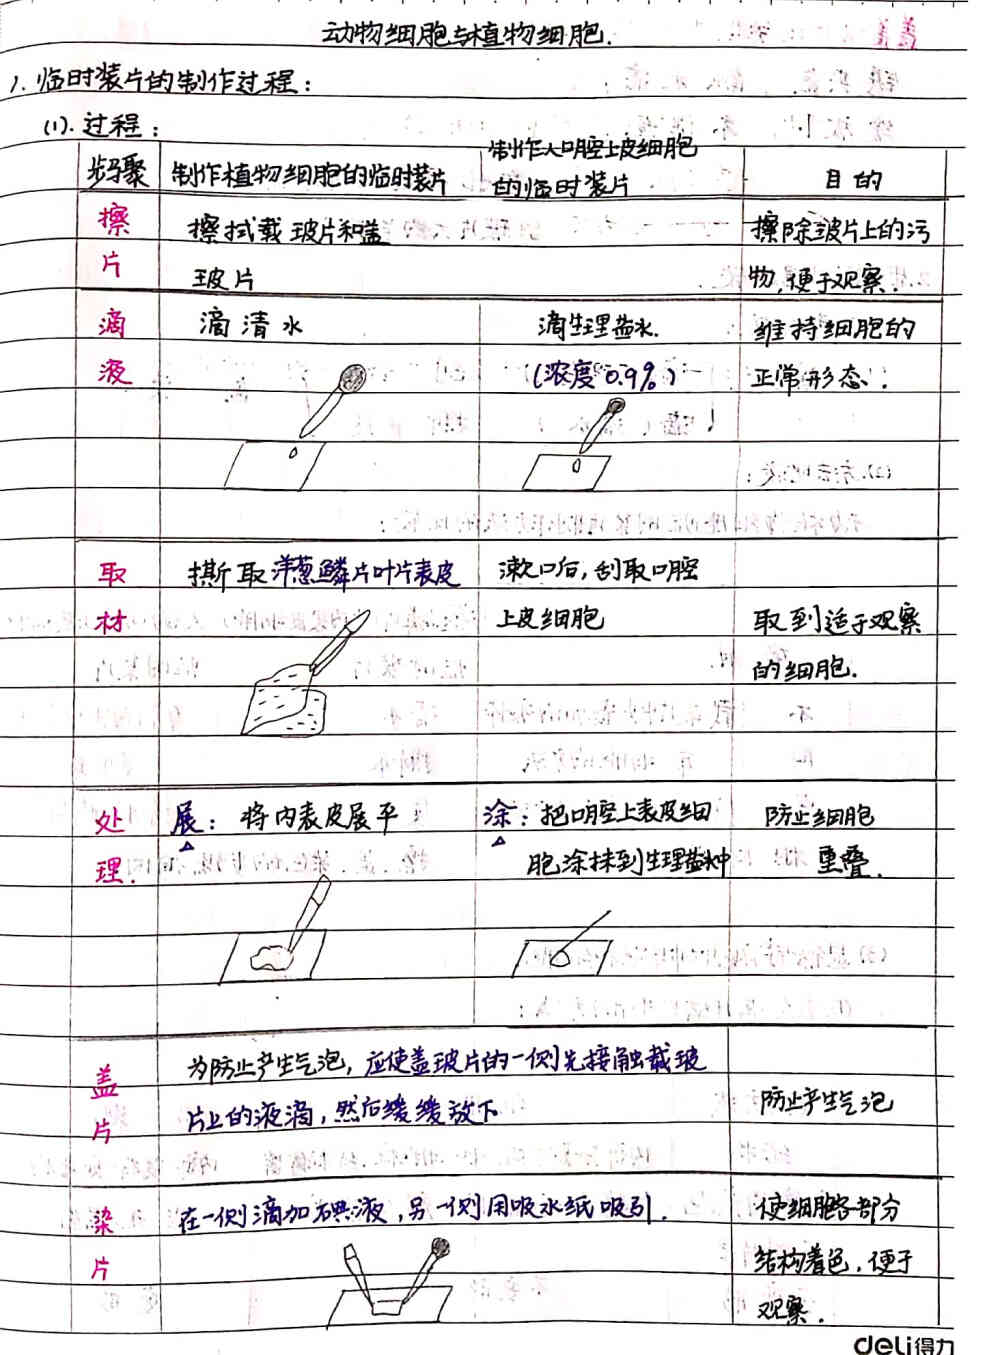 动物细胞与植物细胞.
1. 临时装片的制作过程:
(1). 过程:
步骤 制作植物细胞的临时装片 制作人口腔上皮细胞的临时装片 目的
擦片 擦拭载玻片和盖玻片 擦除玻片上的污物,便于观察.
滴液 滴清水 滴生理盐水.(浓度0.9%) 维持细胞的正常形态.
取材 撕取洋葱鳞片叶片表皮 漱口后,刮取口腔上皮细胞 取到适于观察的细胞.
处理. 展: 将内表皮展平 涂: 把口腔上表皮细胞涂抹到生理盐水中 防止细胞重叠.
盖片 为防止产生气泡,应使盖玻片的一侧先接触载玻片上的液滴,然后缓缓放下 防止产生气泡
染片 在一侧滴加碘液,另一侧用吸水纸吸引. 使细胞各部分结构着色,便于观察.
deli得力